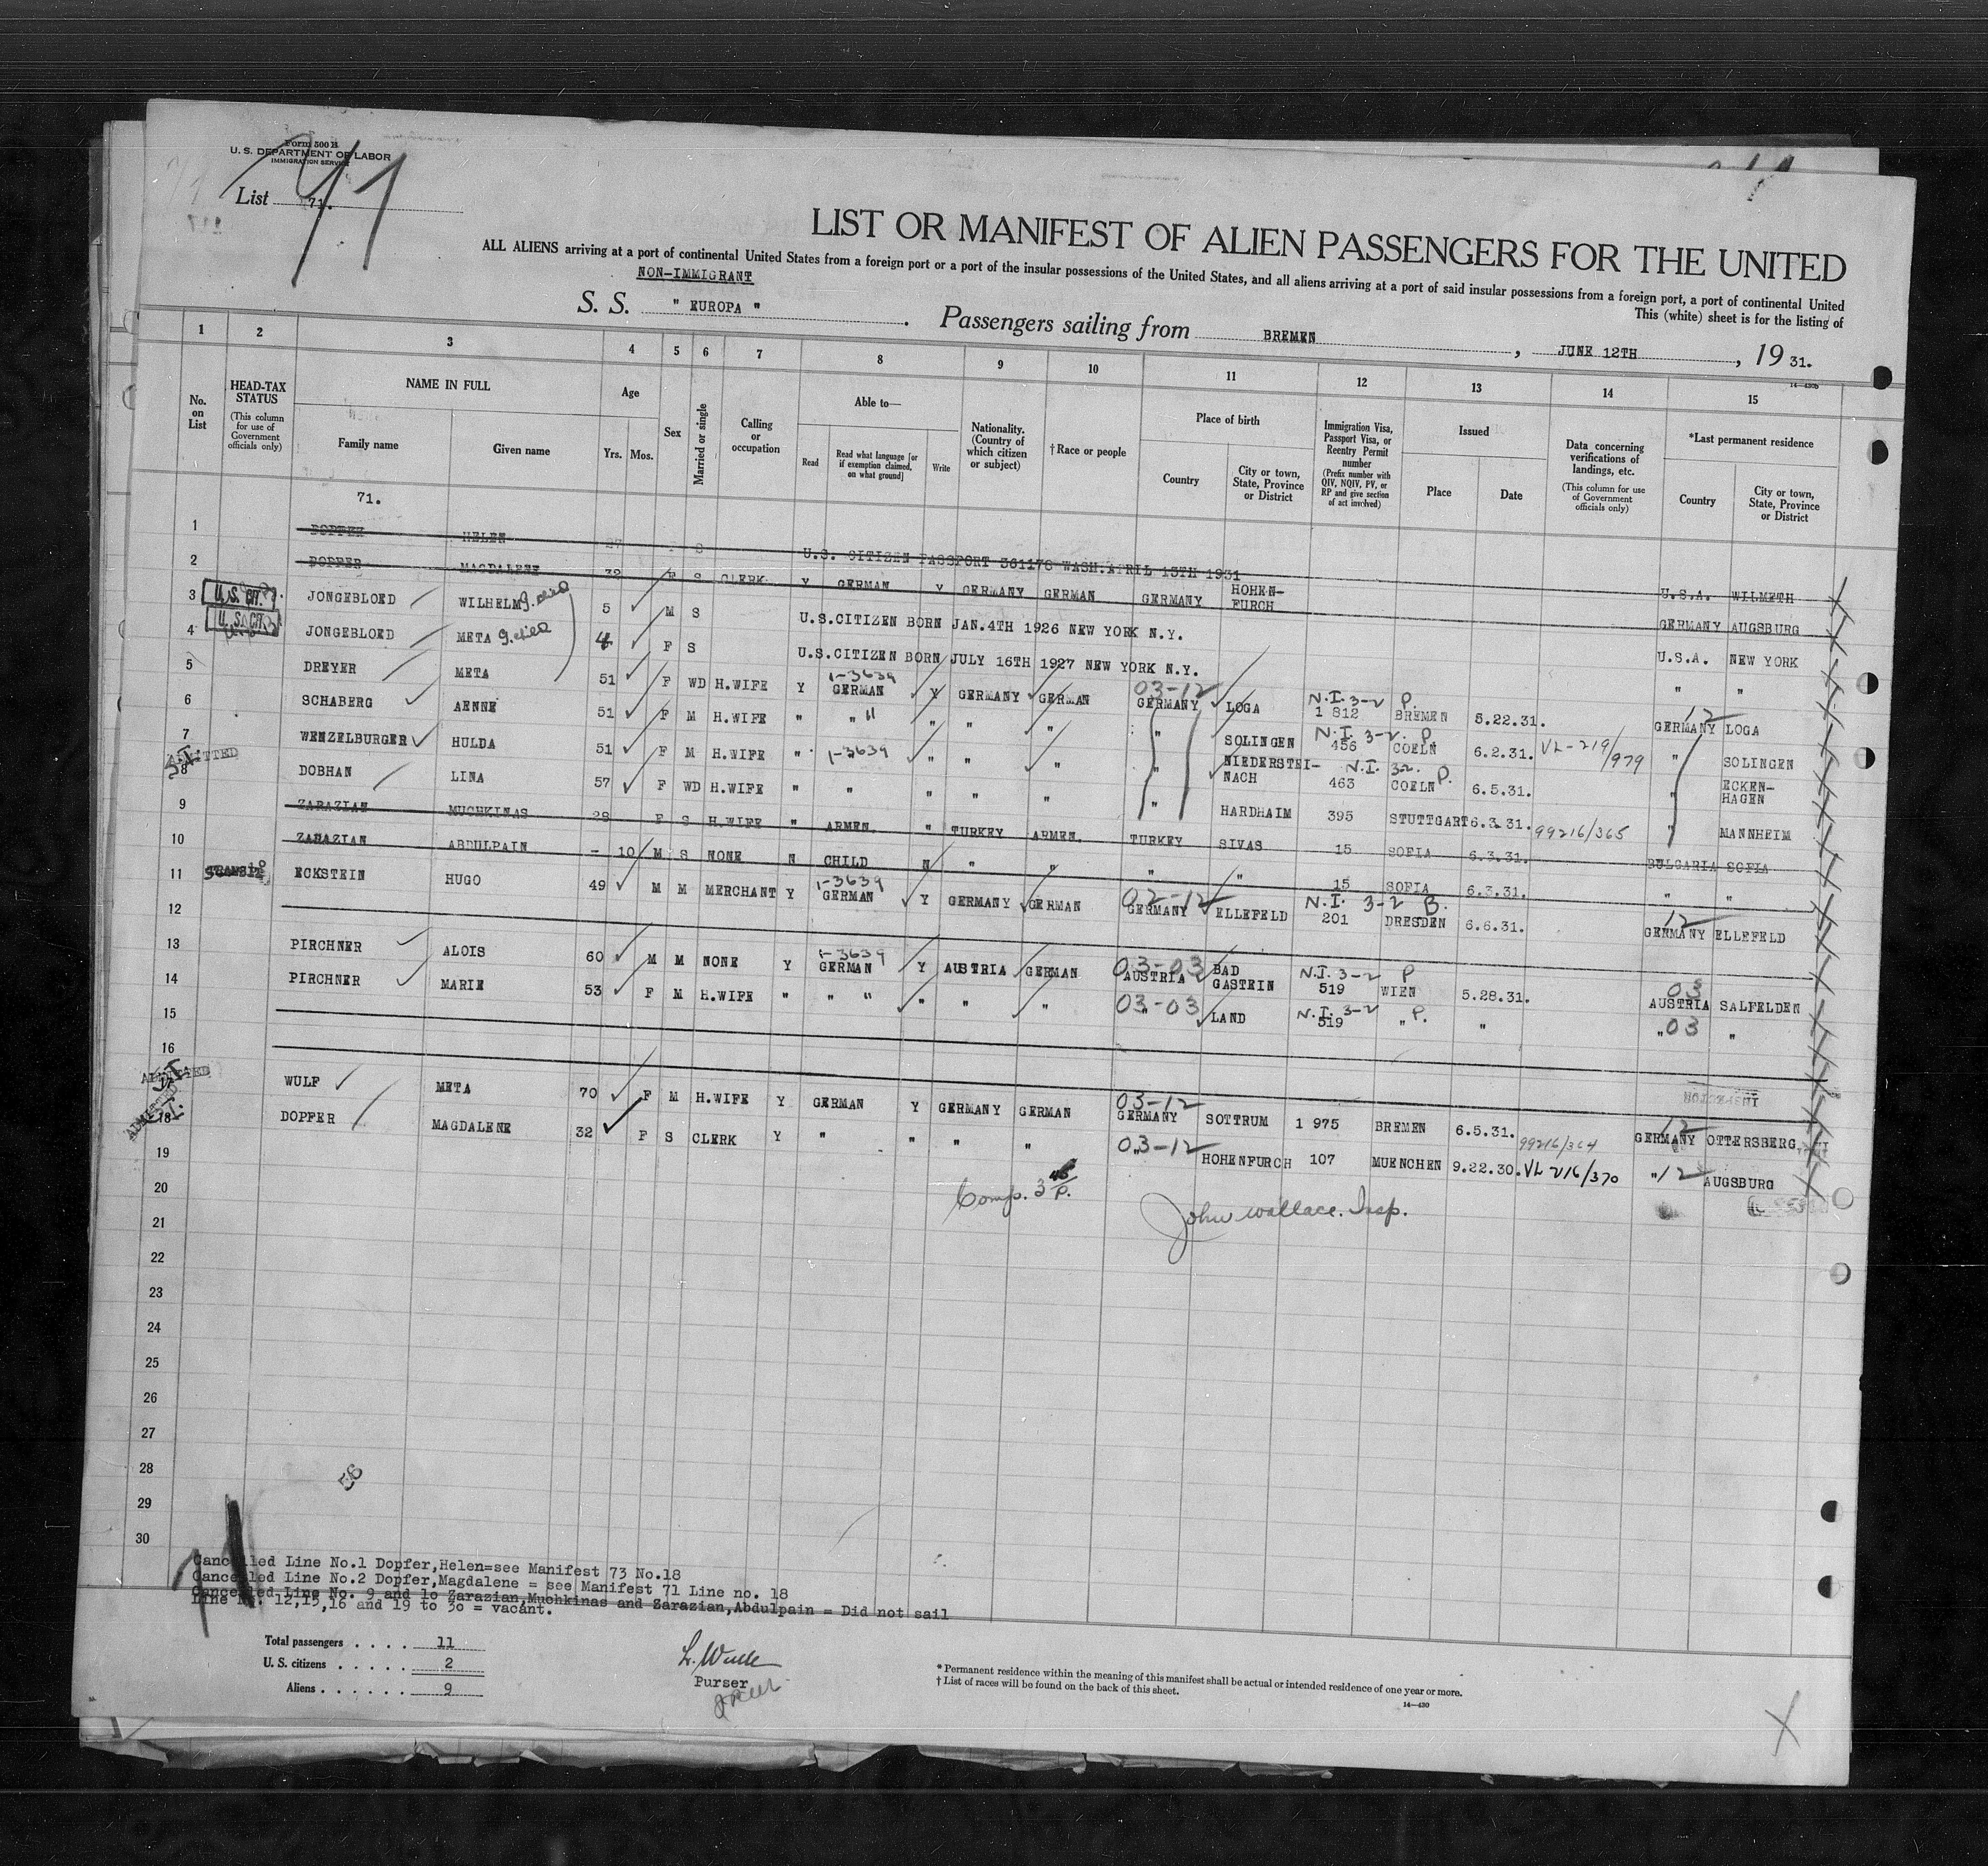 Form 500 B
U. S. DEPARTMENT OF LABOR
IMMIGRATION SERVICE
List 71.
71
LIST OR MANIFEST OF ALIEN PASSENGERS FOR THE UNITED
ALL ALIENS arriving at a port of continental United States from a foreign port or a port of the insular possessions of the United States, and all aliens arriving at a port of said insular possessions from a foreign port, a port of continental United
NON-IMMIGRANT
This (white) sheet is for the listing of
S. S. " EUROPA ". Passengers sailing from BREMEN, JUNE 12TH, 1931.
14-430b
1 2 3 4 5 6 7 8 9 10 11 12 13 14 15
No. on List
HEAD-TAX STATUS (This column for use of Government officials only)
NAME IN FULL
Family name Given name
Age Yrs. Mos.
Sex
Married or single
Calling or occupation
Able to—
Read Read what language [or if exemption claimed, on what ground] Write
Nationality. (Country of which citizen or subject)
†Race or people
Place of birth
Country City or town, State, Province or District
Immigration Visa, Passport Visa, or Reentry Permit number (Prefix number with QIV, NQIV, PV, or RP and give section of act involved)
Issued
Place Date
Data concerning verifications of landings, etc. (This column for use of Government officials only)
*Last permanent residence
Country City or town, State, Province or District
71.
1 DOPFER HELEN 27 F S U.S. CITIZEN PASSPORT 361178 WASH.APRIL 15TH 1931 U.S.A. WILMETH
2 DOPFER MAGDALENE 32 F S CLERK Y GERMAN Y GERMANY GERMAN GERMANY HOHEN-FURCH GERMANY AUGSBURG
3 U.S. CIT. JONGEBLOED WILHELM 5 M S U.S.CITIZEN BORN JAN.4TH 1926 NEW YORK N.Y. U.S.A. NEW YORK
4 U.S. CIT. JONGEBLOED META 4 F S U.S.CITIZEN BORN JULY 16TH 1927 NEW YORK N.Y. " "
5 DREYER META 51 F WD H.WIFE Y 1-3639 GERMAN Y GERMANY GERMAN 03-12 GERMANY LOGA N.I. 3-2 P. 1 812 BREMEN 5.22.31. 12 GERMANY LOGA
6 SCHABERG AENNE 51 F M H.WIFE " " " " " " SOLINGEN N.I. 3-2. P. 456 COELN 6.2.31. VL-219/979 " SOLINGEN
7 WENZELBURGER HULDA 51 F M H.WIFE " 1-3639 " " " " NIEDERSTEI-NACH N.I. 3-2. P. 463 COELN 6.5.31. " ECKEN-HAGEN
8 ADMITTED DOBHAN LINA 57 F WD H.WIFE " " " " " " HARDHAIM 395 STUTTGART 6.3.31. 99216/365 " MANNHEIM
9 ZARAZIAN MUCHKINAS 28 F S H.WIFE " ARMEN. " TURKEY ARMEN. TURKEY SIVAS 15 SOFIA 6.3.31. BULGARIA SOFIA
10 ZARAZIAN ABDULPAIN - 10 M S NONE N CHILD N " " " " 15 SOFIA 6.3.31. " "
11 ECKSTEIN HUGO 49 M M MERCHANT Y 1-3639 GERMAN Y GERMANY GERMAN 02-12 GERMANY ELLEFELD N.I. 3-2 B. 201 DRESDEN 6.6.31. 12 GERMANY ELLEFELD
12
13 PIRCHNER ALOIS 60 M M NONE Y 1-3639 GERMAN Y AUSTRIA GERMAN 03-03 AUSTRIA BAD GASTEIN N.I. 3-2 P 519 WIEN 5.28.31. 03 AUSTRIA SALFELDEN
14 PIRCHNER MARIE 53 F M H.WIFE " " " " " " 03-03 LAND N.I. 3-2 P. 519 " " " 03 "
15
16
ADMITTED WULF META 70 F M H.WIFE Y GERMAN Y GERMANY GERMAN 03-12 GERMANY SOTTRUM 1 975 BREMEN 6.5.31. 99216/364 12 GERMANY OTTERSBERG
18 ADMITTED DOPFER MAGDALENE 32 F S CLERK Y " " " " 03-12 HOHENFURCH 107 MUENCHEN 9.22.30. VL 216/370 " 12 AUGSBURG
19
20 Comp. 3 P. John Wallace. Insp.
21
22
23
24
25
26
27
28
29
30
Cancelled Line No.1 Dopfer,Helen=see Manifest 73 No.18
Cancelled Line No.2 Dopfer,Magdalene = see Manifest 71 Line no. 18
Cancelled Line No. 9 and 10 Zarazian,Muchkinas and Zarazian,Abdulpain = Did not sail
Line No. 12,15,16 and 19 to 30 = vacant.
Total passengers . . . . 11
U. S. citizens . . . . . 2
Aliens . . . . . . 9
Purser
* Permanent residence within the meaning of this manifest shall be actual or intended residence of one year or more.
† List of races will be found on the back of this sheet.
14-430